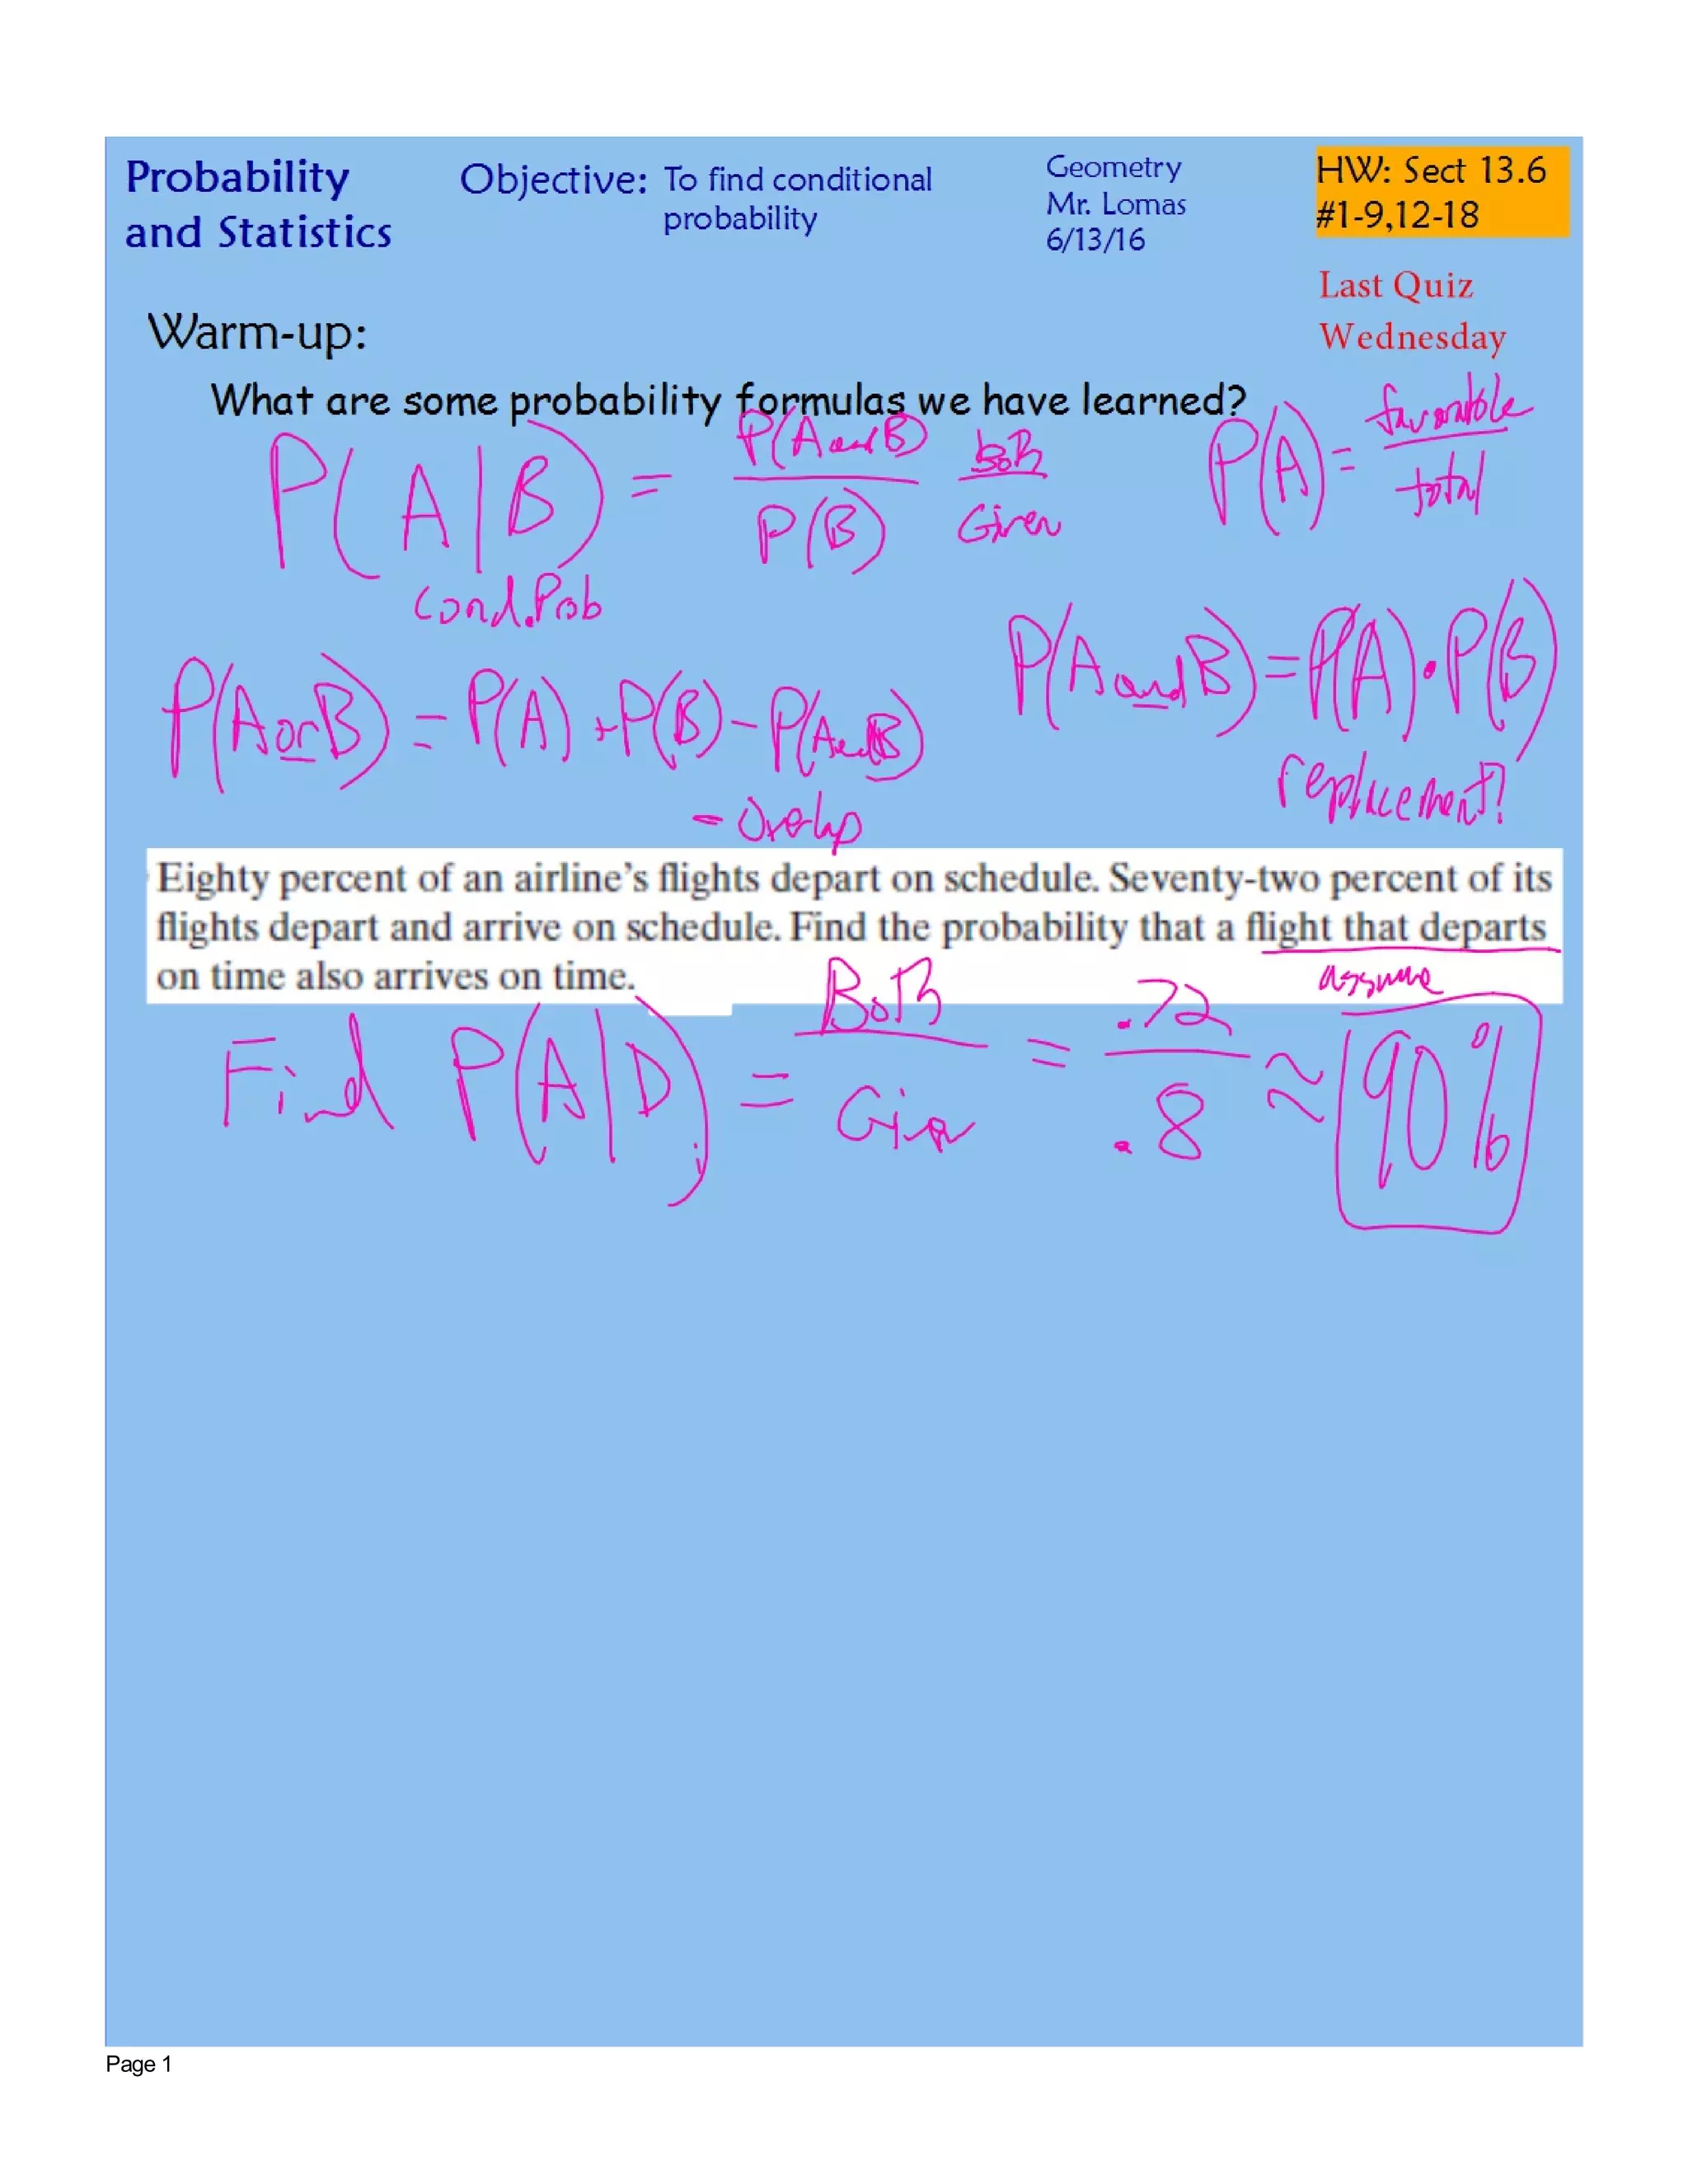 Probability
and Statistics
Objective: To find conditional
probability
Geometry
Mr. Lomas
6/13/16
HW: Sect 13.6
#1-9,12-18
Last Quiz
Wednesday
Warm-up:
What are some probability formulas we have learned?
P(A|B) = P(A and B) / P(B) Both / Given
Cond. Prob
P(A) = favorable / total
P(A or B) = P(A) + P(B) - P(A and B)
- Overlap
P(A and B) = P(A) • P(B)
replacement?
Eighty percent of an airline's flights depart on schedule. Seventy-two percent of its
flights depart and arrive on schedule. Find the probability that a flight that departs
on time also arrives on time.
assume
Find P(A|D) = Both / Given = .72 / .8 ≈ 90%
Page 1